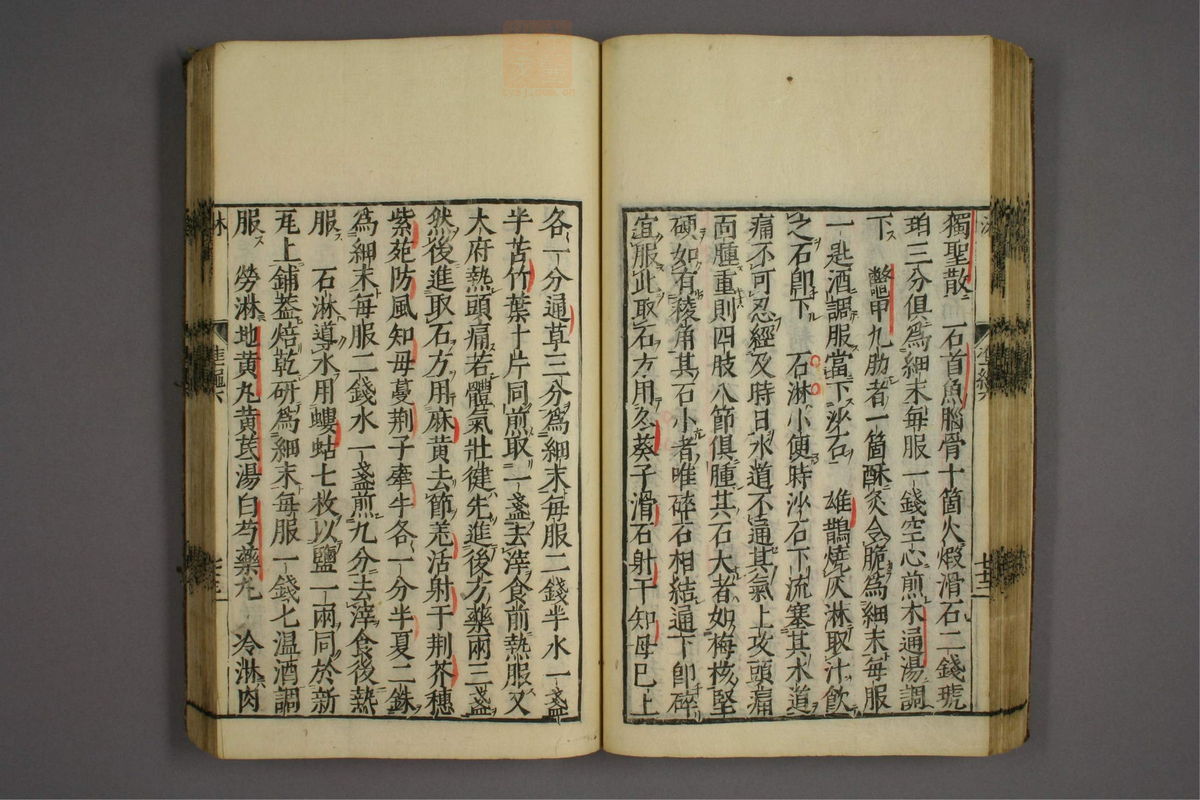 獨聖散 石首魚腦骨十箇火煆滑石二錢琥
珀三分俱為細末每服一錢空心煎木通湯調
下 鱉甲九肋者一箇酥灸令脆為細末每服
一匙酒調服當下沙石 雄鵲燒灰淋取汁飲
之石卽下 石淋小便時沙石下流塞其水道
痛不可忍經及時日水道不通其氣上攻頭痛
面腫重則四肢八節俱腫其石大者如梅核堅
硬如有稜角其石小者唯碎石相結通下卽碎
宜服此取石方用冬葵子滑石射干知母已上
各一分通草三分為細末每服二錢半水一盞
半苦竹葉十片同煎取一盞去滓食前熱服又
大府熱頭痛若體氣壯健先進後方藥兩三盞
然後進取石方用麻黄去節羗活射干荆芥穗
紫苑防風知母蔓荆子牽牛各一分半夏二銖
為細末每服二錢水一盞煎九分去滓食後熱
服 石淋導水用螻蛄七枚以鹽一兩同於新
瓦上鋪葢焙乾研為細末每服一錢七温酒調
服 勞淋地黄丸黄芪湯白芍藥丸 冷淋肉